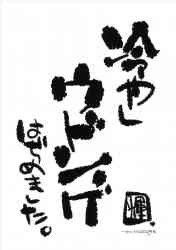 冷やし
ウドンゲ
はじめました。